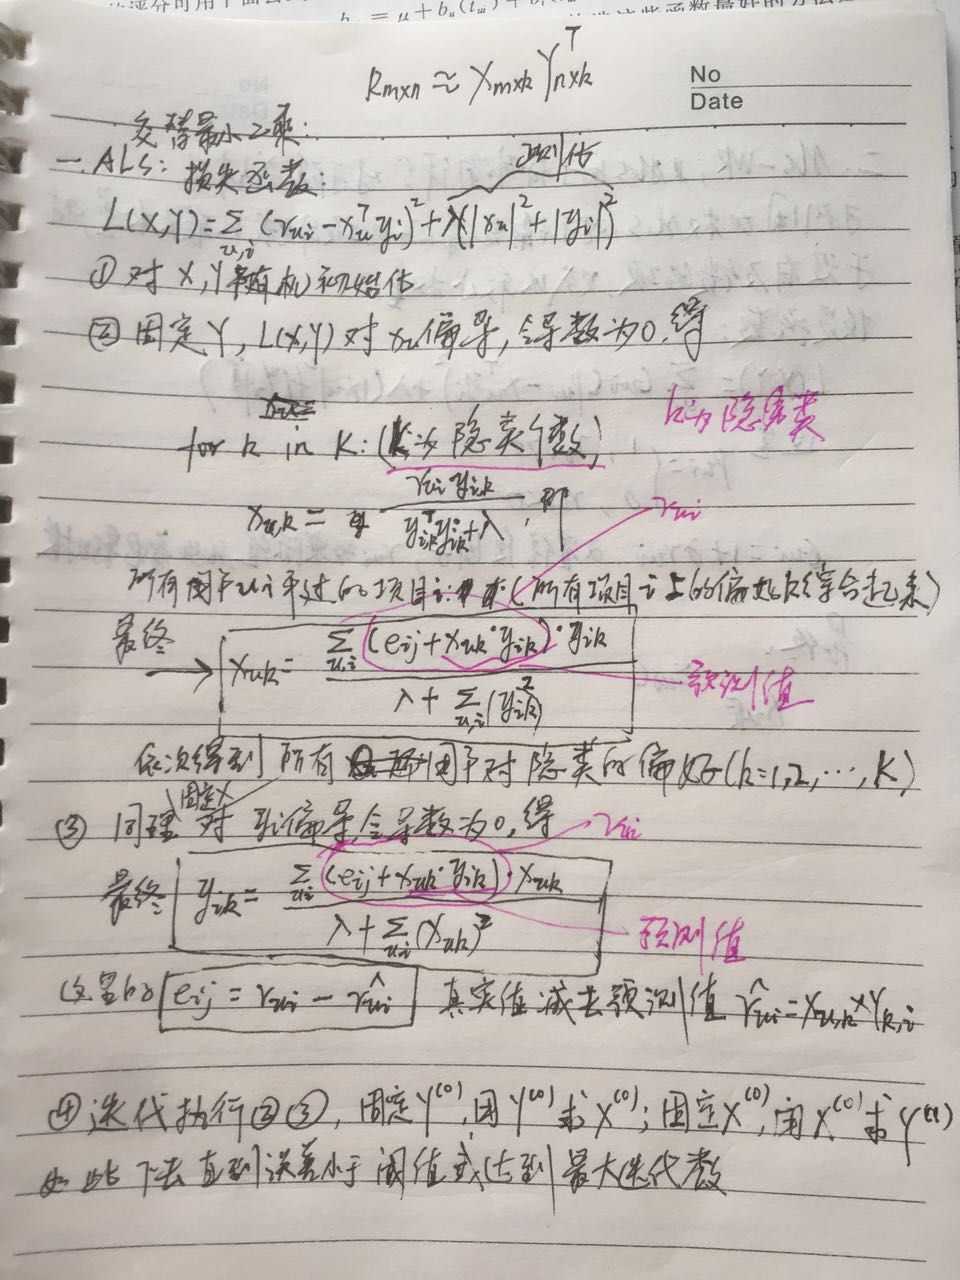 的评分可用下面
R_{m×n} ≈ X_{m×k} Y_{n×k}^T
No
Date
交替最小二乘:
正则化
一. ALS: 损失函数:
L(X,Y)=∑_{u,i} (r_{ui} - x_u^T y_i)^2 + λ(|x_u|^2 + |y_i|^2)
① 对 X, Y 随机初始化
② 固定 Y, L(X,Y) 对 x_u 偏导, 令导数为0, 得
k为 隐类
for k in K: (K为 隐类个数)
x_{u,k} = \frac{r_{ui} y_{i,k}}{y_{i,k}^T y_{i,k} + λ}, 即
r_{ui}
所有用户u评过的项目i: (所有项目i上的偏好k综合起来)
最终
→ x_{uk} = \frac{∑_{u,i} (e_{ij} + x_{uk}·y_{ik})·y_{ik}}{λ + ∑_{u,i} (y_{ik}^2)}
预测值
依次得到 所有 用户对 隐类的偏好 (k=1,2,…,K)
固定X
③ 同理 对 y_i偏导, 令导数为0, 得
r_{ui}
最终 y_{ik} = \frac{∑_{u,i} (e_{ij} + x_{uk}·y_{ik})·x_{uk}}{λ + ∑_{u,i} (x_{uk})^2}
预测值
这里的 e_{ij} = r_{ui} - \hat{r_{ui}} 真实值减去预测值 \hat{r_{ui}} = X_{u,k} × Y_{k,i}
④ 迭代执行②③, 固定Y^{(0)}, 用Y^{(0)} 求 X^{(0)}; 固定X^{(0)}, 用X^{(0)} 求 Y^{(1)}
如此下去 直到误差小于 阈值或达到 最大迭代数